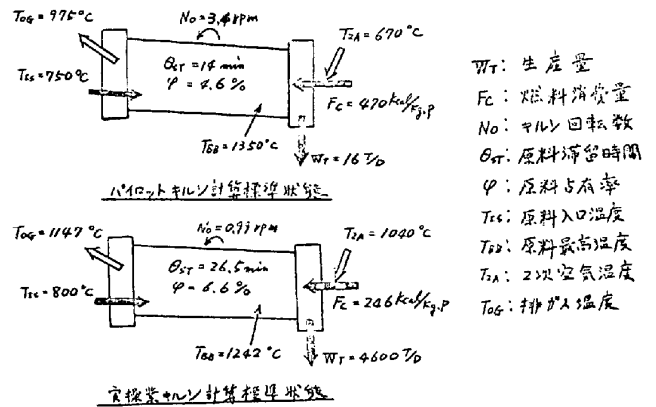 TOG=975°C
No=3.4rpm
T2A=670°C
θST=14min
φ=4.6%
TSS=750°C
FC=470Kcal/Kg.P
TBB=1350°C
WT=16T/D
パイロットキルン計算標準状態
TOG=1147°C
T2A=1040°C
θST=26.5min
φ=6.6%
TSS=800°C
FC=246Kcal/Kg.P
TBB=1242°C
WT=4600T/D
実操業キルン計算標準状態
WT: 生産量
FC: 燃料消費量
No: キルン回転数
θST: 原料滞留時間
φ: 原料占有率
TSS: 原料入口温度
TBB: 原料最高温度
T2A: 2次空気温度
TOG: 排ガス温度